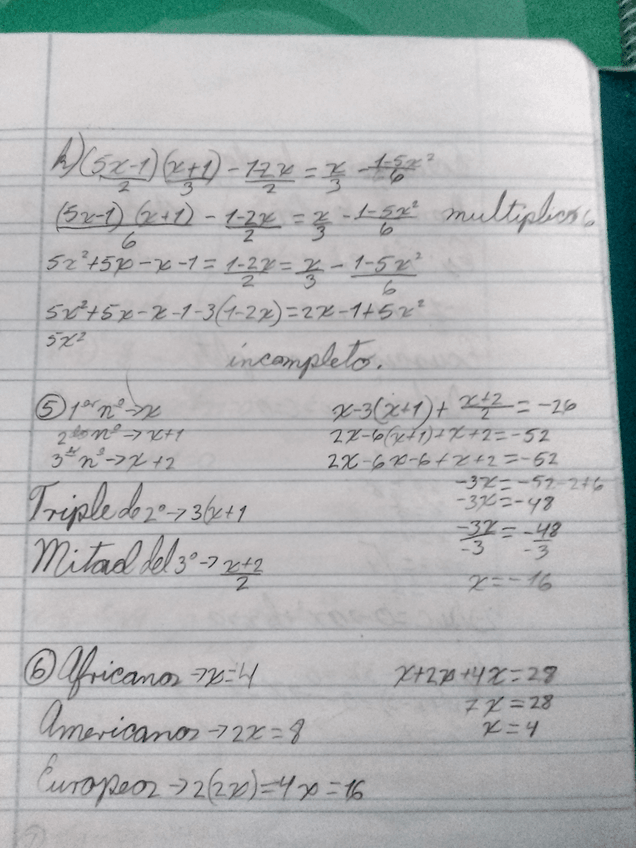 h) (5x-1)/2 (x+1)/3 - 1-2x/2 = x/3 - 1-5x²/6
(5x-1)(x+1)/6 - 1-2x/2 = x/3 - 1-5x²/6 multiplico 6
5x²+5x-x-1 = 1-2x/2 = x/3 - 1-5x²/6
5x²+5x-x-1-3(1-2x)=2x-1+5x²
5x²
incompleto.
⑤ 1er nº → x
2do nº → x+1
3er nº → x+2
Triple de 2º → 3(x+1
Mitad del 3º → x+2/2
x-3(x+1)+ x+2/2 = -26
2x-6(x+1)+x+2=-52
2x-6x-6+x+2=-52
-3x=-52-2+6
-3x=-48
-3x/-3 = -48/-3
x=-16
⑥ Africanos → x=4
Americanos → 2x=8
Europeos → 2(2x)=4x=16
x+2x+4x=28
7x=28
x=4